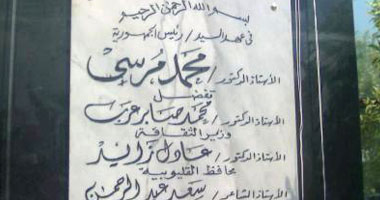 بسم الله الرحمن الرحيم
فى عهد السيد / رئيس الجمهورية
الأستاذ الدكتور / محمد مرسى
تفضل
الأستاذ الدكتور / محمد صابر عرب
وزير الثقافة
الأستاذ الدكتور / عادل زايد
محافظ القليوبية
الأستاذ الشاعر / سعد عبد الرحمن